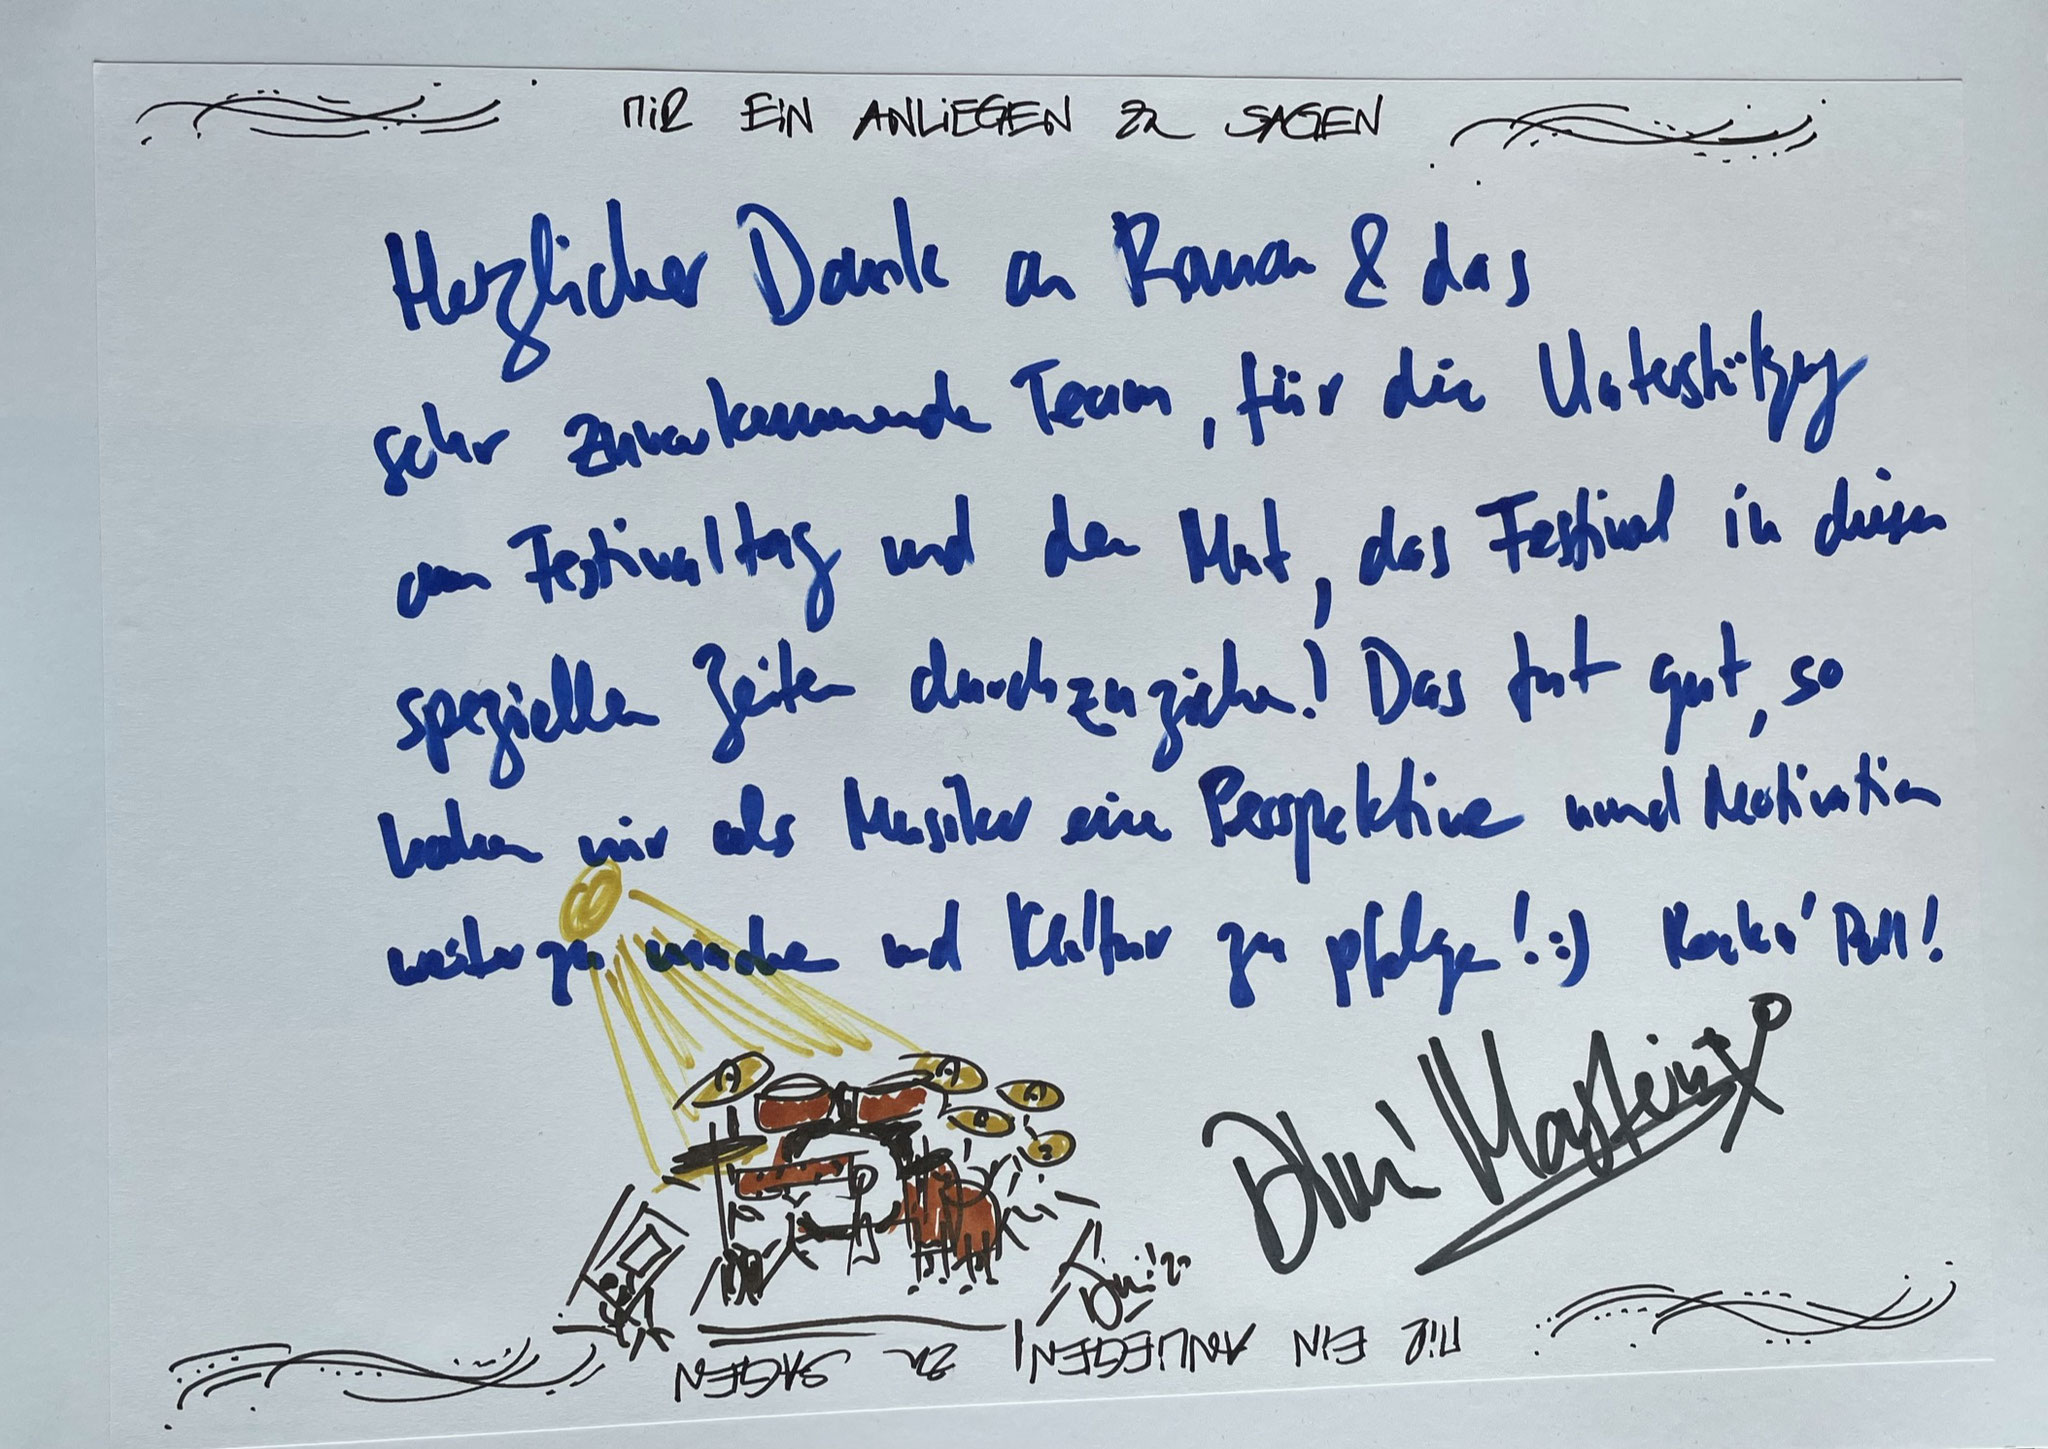 MIR EIN ANLIEGEN ZU SAGEN
Herzlicher Dank an Roman & das
sehr zuvorkommende Team, für die Unterstützung
am Festivaltag und den Mut, das Festival in diesen
speziellen Zeiten durchzuziehen! Das tut gut, so
haben wir als Musiker eine Perspektive und Motivation
weiter zu machen und Kultur zu pflegen! :) Rock'n' Roll!
MIR EIN ANLIEGEN ZU SAGEN